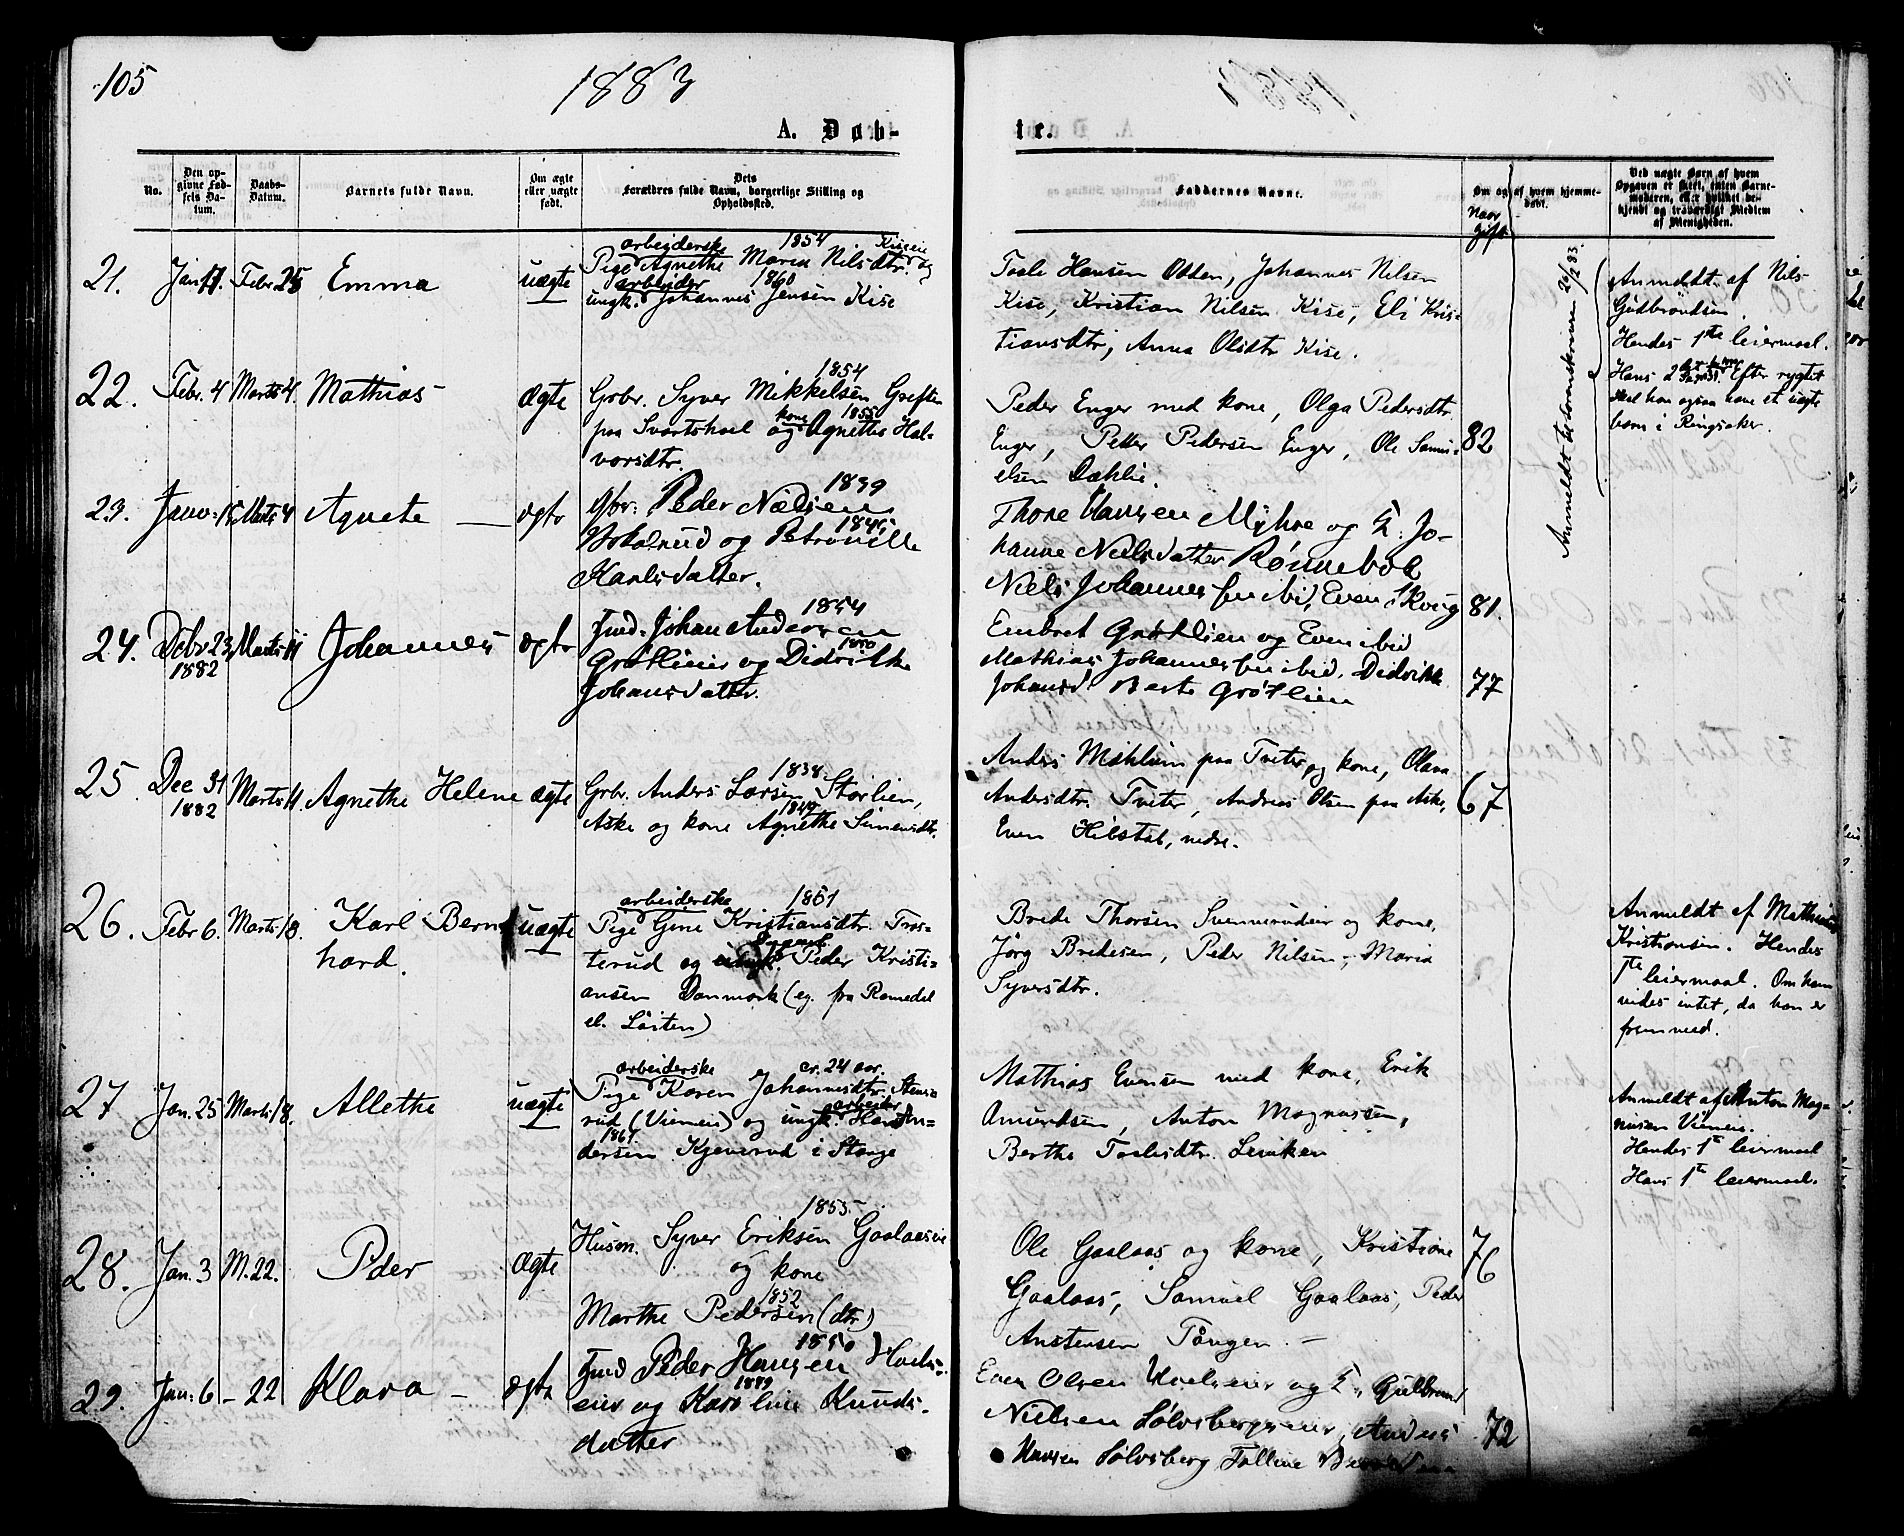 105
1883
A. Døb-
te.
No.
Den op-
givne Fød-
sels Da-
tum.
Daabs-
Datum.
Barnets fulde Navn.
Om ægte
eller uægte
født.
Dets
Forældres fulde Navn, borgerlige Stilling og
Opholdssted.
Faddernes Navne.
Om og af hvem hjemme-
døbt.
Naar
gift
Ved uægte Børn af hvem
Opgaven er skeet, enten Barne-
moderen, eller hvilket be-
kjendt og troværdigt Medlem
af Menigheden.
21. Jan 11. Febr 25 Emma uægte
arbeiderske 1854
Pige Agnethe Maren Nilsdtr. og
arbeider 1860
ungk. Johannes Jensen Kise
Johannes Nilsen
Kise, Kristian Nilsen Kise, Eli Kris-
tiansdtr, Anna Olsdtr Kise.
Anmeldt af Nils
Gudbrandsen.
Hendes 1ste leiermaal.
Hans 2 Efter rygtet
skal han ogsaa have et uægte
barn i Ringsaker.
22. Febr. 4 Marts 4. Mathias ægte
1854
Grbr. Syver Mikkelsen Greften
kone 1855
paa og Agnethe Hal-
vorsdtr.
Peder Enger med kone, Olga Pedersdtr.
Enger, Petter Pedersen Enger, Ole Samu-
elsen Dæhlie.
82
23. Janr: 15 Marts 4 Agnete — ægte
Gbr: Peder Nielsen
og Petronille
Karlsdatter.
Thore Hansen Myhre og K. Jo-
hanne Nielsdatter
Niels Johannessen ibid, Even Skoug
81.
24. Decbr 23 Marts 11 Johannes ægte
1882
1854
Jnd: Johan Andersen
1850
Grøtlieier og Didrikke
Johansdatter.
Embret Grøtlien og Even ibid
Mathias Johannessen ibid. Didrikke
Johansd. Berte Grøtlien
77
25. Dec 31 Marts 11. Agnethe Helene ægte
1882
1838
Grbr. Anders Larsen Størlien,
1849
Aske og kone Agnethe Simensdtr.
Anders Mæhlum paa Tveter og kone, Olava
Andersdtr. Tveter, Andreas Olsen paa Aske,
Even Hilstad, nedre.
67
26. Febr 6. Marts 18. Karl Bern-
hard. uægte
arbeiderske 1861
Pige Gine Kristiansdtr. Tros-
terud og Peder Kristi-
ansen Danmark (eg. fra Romedal
el. Löiten)
Brede Thorsen Svennerudeier og kone,
Jörg Bredesen, Peder Nilsen, Maria
Syversdtr.
Anmeldt af Mathias
Kristiansen. Hendes
1ste leiermaal. Om ham
vides intet, da han er
fremmed.
27 Jan. 25 Marts 18. Allethe uægte
arbeiderske cr. 24 aar.
Pige Karen Johannesdtr. Stens-
arbeider
rud (Viemeie) og ungk. Hans An-
1861
dersen i Stange
Mathias Evensen med kone, Erik
Amundsen, Anton Magnussen,
Berthe Toalisdtr.
Anmeldt af Anton Mag-
nussen Viemeie.
Hendes 1ste leiermaal
Hans 1ste leiermaal.
28. Jan. 3 M. 22. Peder ægte
1855
Husm. Syver Eriksen Gaalaaseie
og kone
1852
Marthe Pedersen (dtr)
Ole Gaalaas og kone, Kristiane
Gaalaas, Samuel Gaalaas, Peder
Anstensen Tången. —
76
29. Jan: 6 – 22 Klara – ægte
1850
Jnd Peder Hansen Hvels-
eier og Karoline Knuds-
datter
Even Olsen Hvelseier og K. Gulbrand
Nielsen Sølvsbergseier, Anders
Hansen Sølvsberg
72